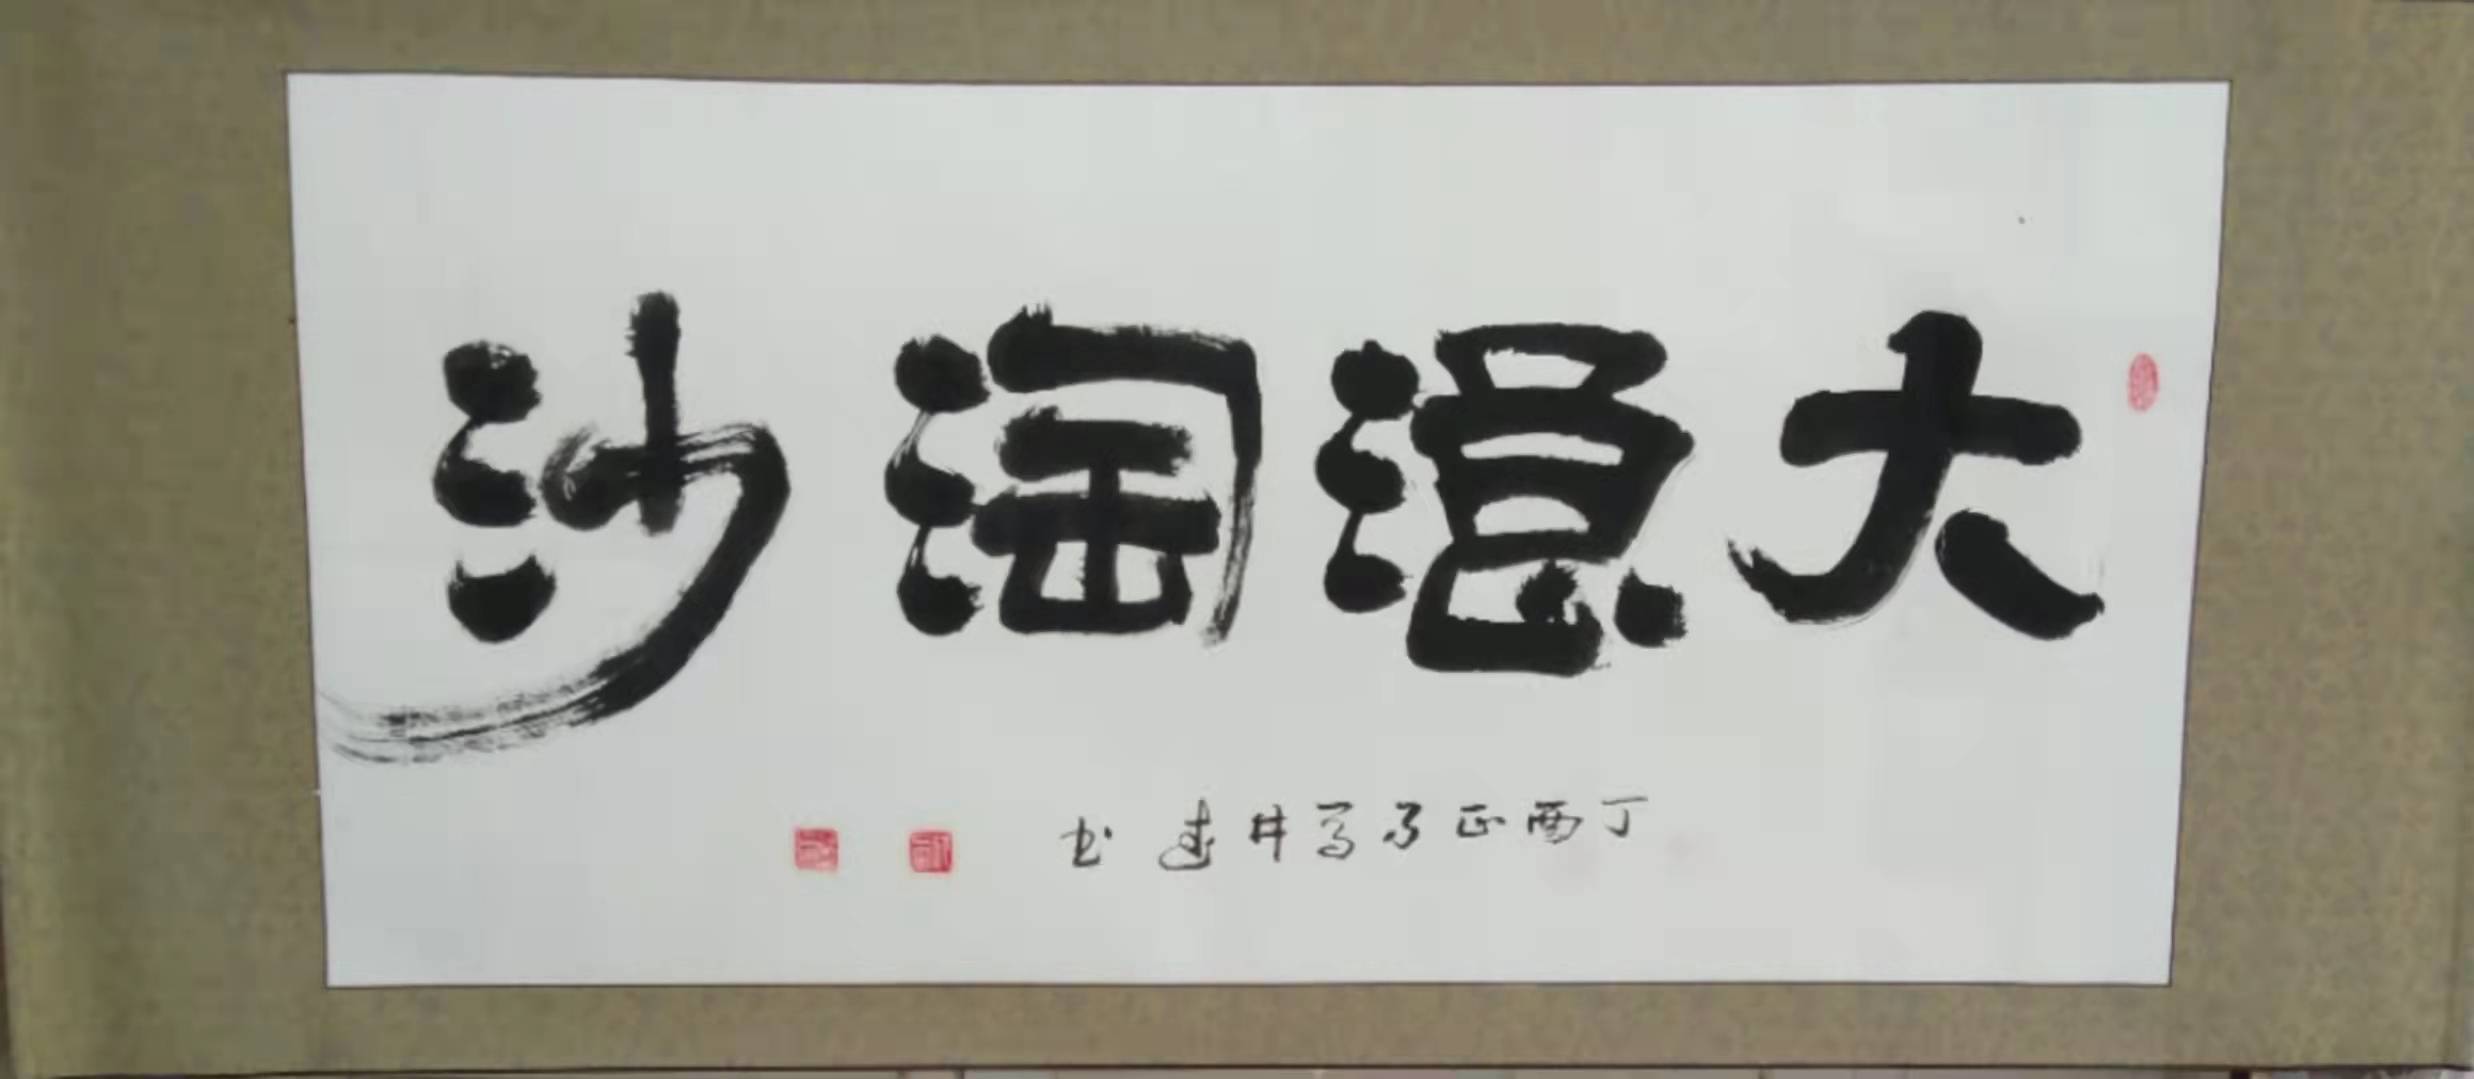 大浪淘沙
丁酉正月井建书